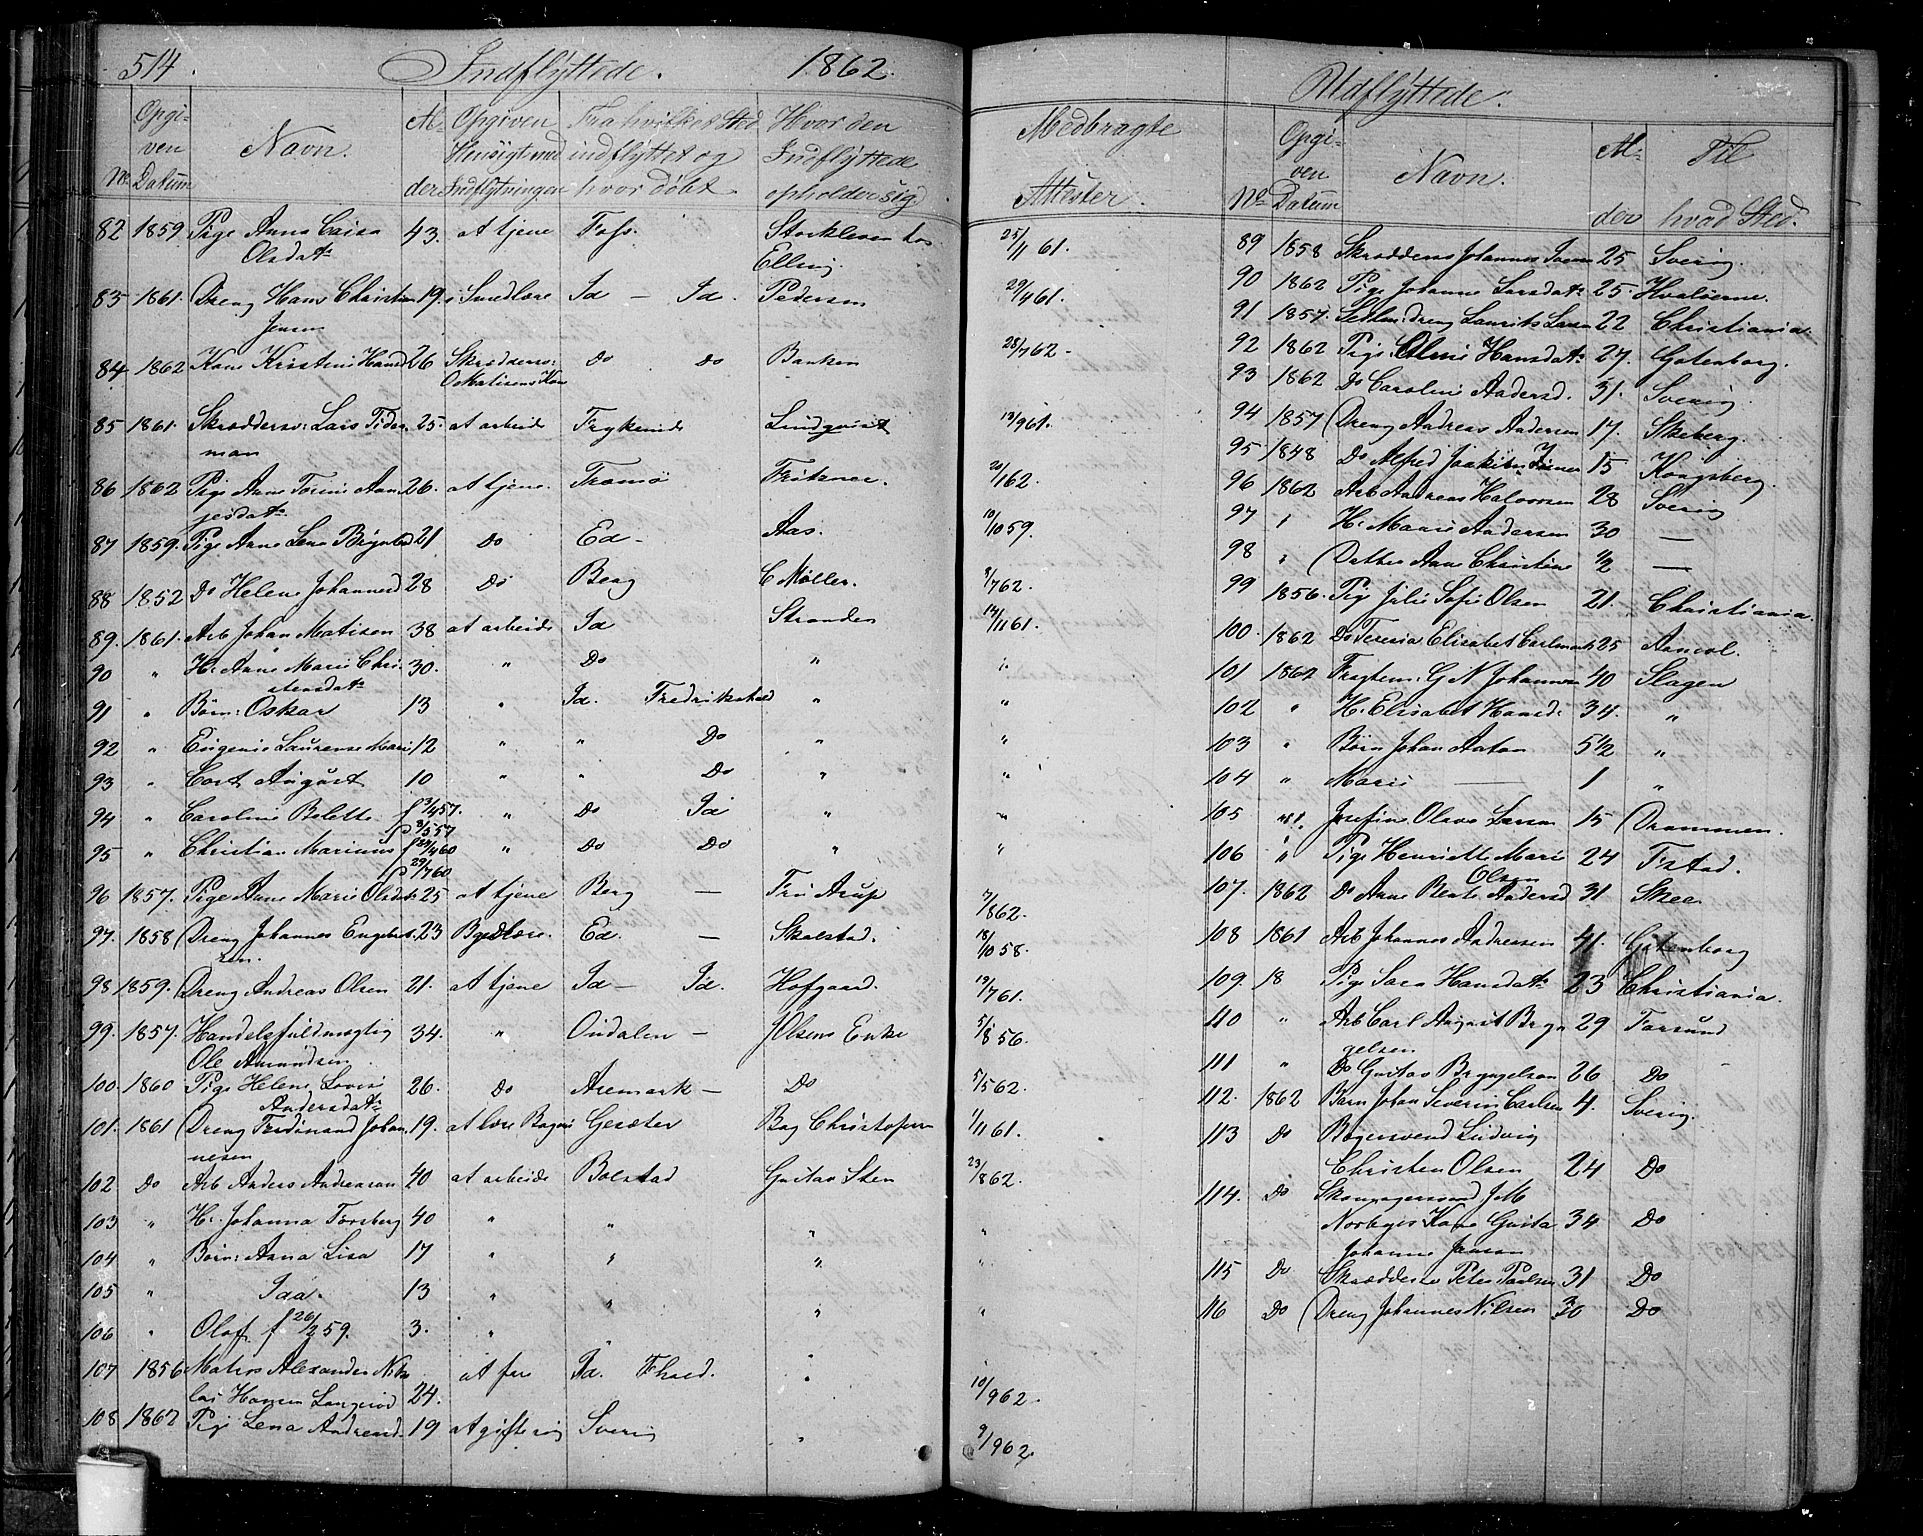 514. Indflyttede. 1862.
No Opgiven Datum Navn. Alder Opgiven Hensigt med Indflytningen Fra hvilket Sted indflyttet og hvor døbt Hvor den Indflyttede opholder sig Medbragte Attester.
82 1859 Pige Anna Caisa 43. at tjene Fos. Stockleven hos 25/11 61.
Olsdatr Elling
83 1861. Dreng Hans Christian 19. i Smedlære Id — Id. Pedersen 29/4 61.
Jensen
84 1862 Kone Kristine Hansd 26 Skræddersv: Do Do Banken 28/7 62 -
85 1861. Skræddersv: Lars Tide 25. at arbeide Trykerud Lindqvist 13/9 61.
man
86 1862 Pige Anne Torine Aan 26. at tjene. Tromö Fritzner. 20/1 62.
jesdatr
87 1859. Pige Anne Lena 21 Do Ed - Aas. 10/10 59.
88 1852 Do Helene Johannesd 28 Do Berg C Møller. 8/7 62.
89. 1861. Arb Johan Matisen 38 at arbeide Id Stranden 12/11 61.
90 " H: Anne Marie Chri 30. " Do " "
stensdatr
91 " Børn: Oskar 13 " Id. Fredrikshald " "
92 " Eugenie Laurense Marie 12 " " Do " "
93 " Carl August 10 " " Do " "
94 " Caroline Bolette f 3/4 57. " Do Id " "
D 3/5 57
95 " Christian Marinus f 29/4 60 " Do Do " "
D 29/7 60
96 1857. Pige Anne Marie Olsdtr 25 at tjene Berg — Fru Arup 7/8 62.
97. 1858 Dreng Johannes Engebret 23 Ed. — Skolstad. 18/10 58.
sen.
98 1859. Dreng Andreas Olsen 21. at tjene Id — Id. Hofgaard. 19/7 61.
99. 1857. Handelsfuldmægtig 34. " Oudalen — J Olsens Enke 5/8 56.
Ole Amundsen
100. 1860 Pige Helene Lovise 26. Do Aremark — Do 5/5 62.
Andersdatr
101. 1861 Dreng Ferdinand Johan 19. at lære Bager Gesæter Bag Christofersen 1/11 61.
nesen
102 Do Arb Anders Andreasen 40 at arbeide Bolstad Gustav Sten 23/8 62.
103 " H: Johanna Forsberg 40 " " " "
104 " Børn: Anna Lisa 17 " " " "
105 " Ida. 13 " " "
106 " Olof f 26/2 59. 3. " " "
107 1856 Matros Alexander Niko at fare Id. Fhald. " 10/9 62.
lai Hansen Langerød 24.
108 1862 Pige Lena Andreasd. 19 at gifte sig Sverig " 9/9 62.
Udflyttede.
No Opgiven Datum Navn. Alder Til hvad Sted.
89 1858 Skræddersv Johannes 25 Sverig.
90 1862 Pige Johanne Larsdatr 25. Hvaløerne.
91 1857. dreng Laurits Larsen 22 Christiania.
92 1862 Pige Hansdatr 27. Gotenborg.
93 1862 Do Caroline Andersd. 31. Sverig.
94 1857 Dreng Andreas Andersen 17. Skeberg.
95 1848 Do Alfred 15 Kongsberg.
96 1862 Arb Andreas Halvorsen 28 Sverig
97 " H. Marie Andersen 30 —
98 " Datter Anne Christine 1/2 —
99 1856. Pige Julie Sofie Olsen 21. Christiania.
100. 1862 Do Teresia Elisabet Carlmark 25 Aamool.
101 1862 Fragtem: G N Johannesen 40 Slagen
102 " H. Elisabet Hansd: 34. "
103 " Børn Johan Anton 5 1/2 "
104 " Marie — 1 "
105 Josefine Olava Larsen 15 Drammen.
106 " Pige Henriette Marie 24 Tistad.
Olsen
107. 1862 Do Anne Beate Andersd 31 Skee.
108 1861 Arb Johannes Andreasen 41. Gotenborg
109. 18 Pige Sara Hansdatr 23 Christiania.
110 " Arb Carl August Bryn 29 Torsund
gelsen
111 " Do Gustav Bryngelsen 26 Do
112. 1862 Barn Johan Severin Carlsen 4. Sverig.
113 Do Bagersvend Ludvig
Christen Olsen 24 Do
114. Do Skomagersvend J M
Norbys Kone Gusta 34 Do
Johanne Jansen
115 Do Skræddersv Peter Paulsen 31 Do
116 Do Dreng Johannes Nilsen 30 Do